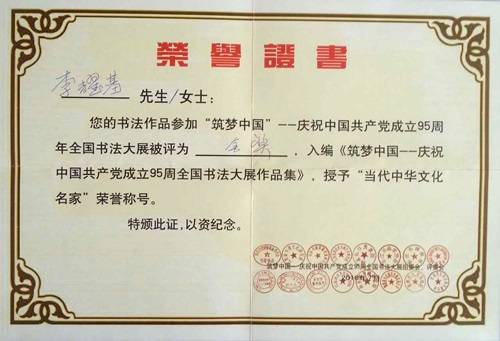 榮譽證書
李耀基 先生/女士：
您的书法作品参加“筑梦中国”--庆祝中国共产党成立95周
年全国书法大展被评为 金奖 ，入编《筑梦中国--庆祝
中国共产党成立95周全国书法大展作品集》，授予“当代中华文化
名家”荣誉称号。
特颁此证，以资纪念。
筑梦中国--庆祝中国共产党成立95周全国书法大展组委会、评委会